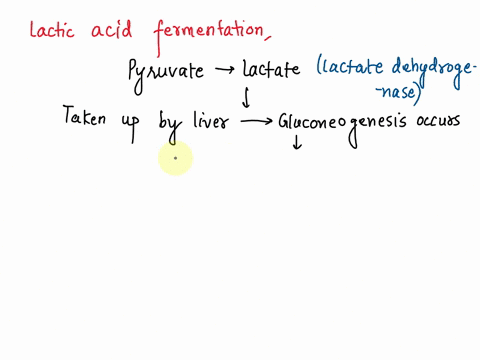 Lactic acid fermentation,
Pyruvate → Lactate (lactate dehydroge-
nase)
↓
Taken up by liver → Gluconeogenesis occurs
↓